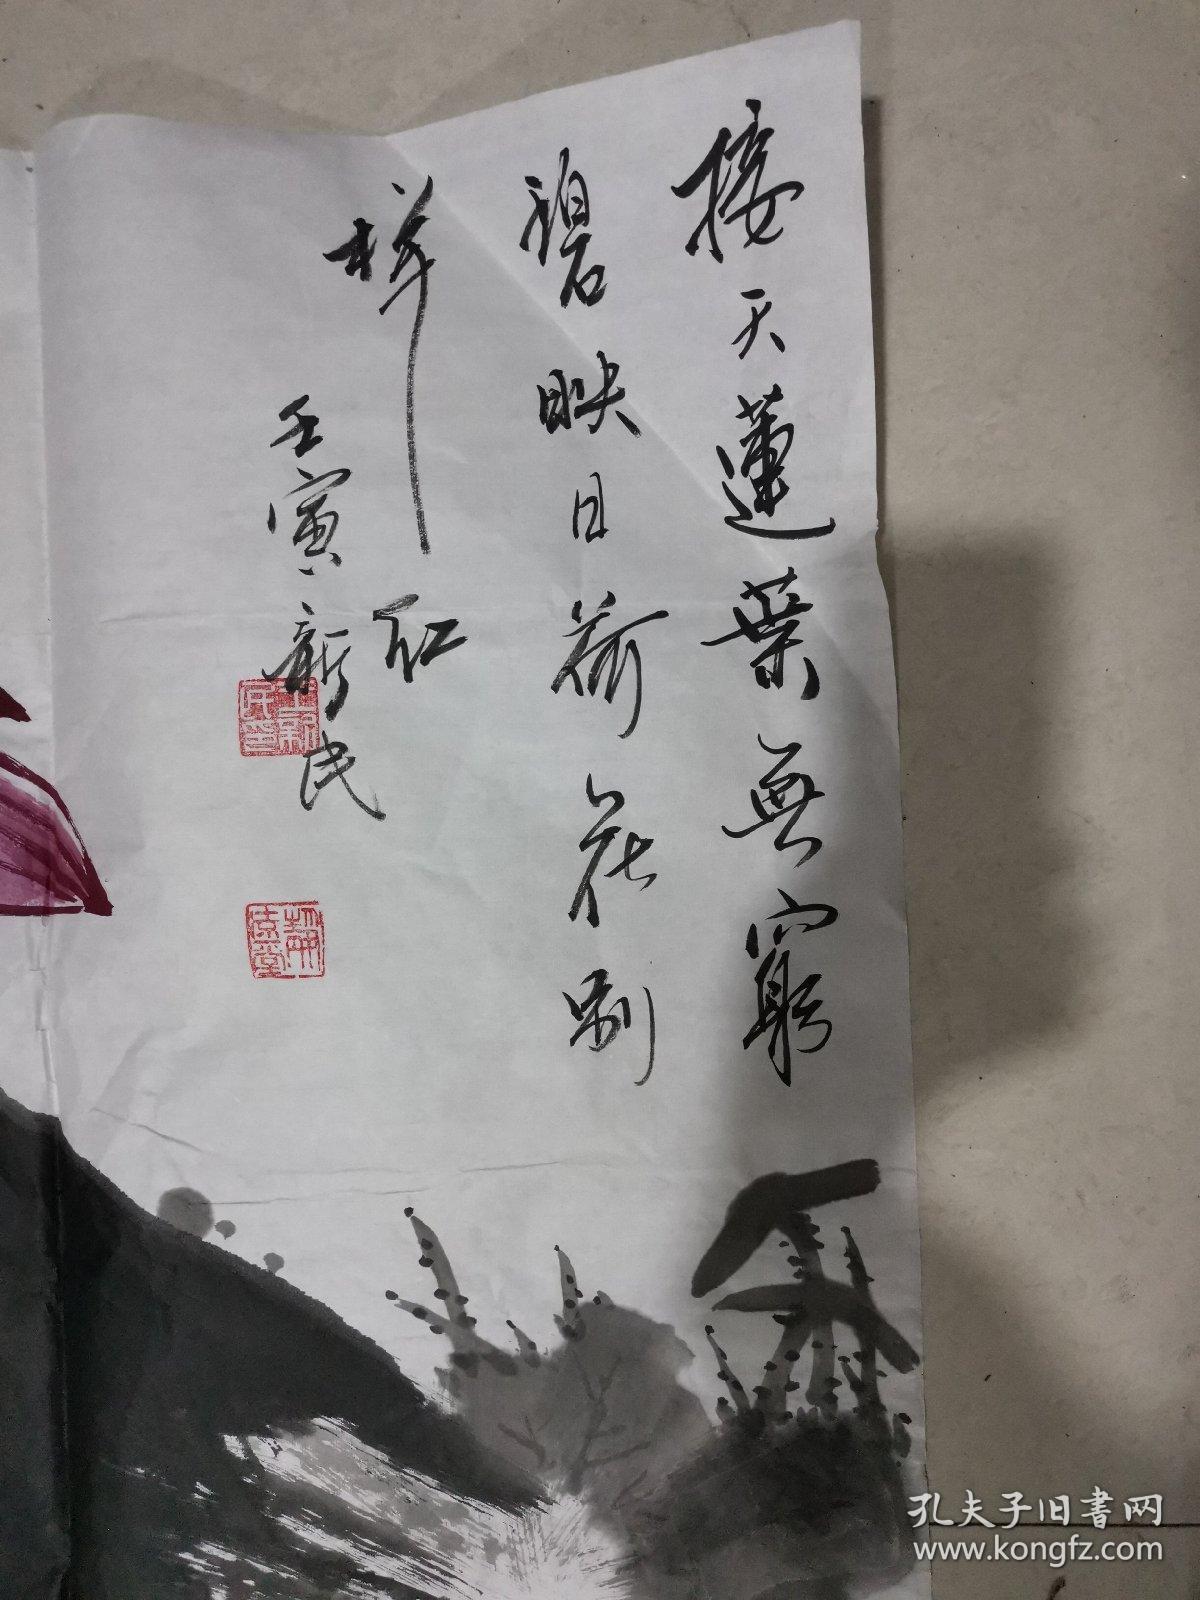 接天蓮葉無窮
碧映日荷花別
樣红
壬寅新民
孔夫子旧書网
www.kongfz.com